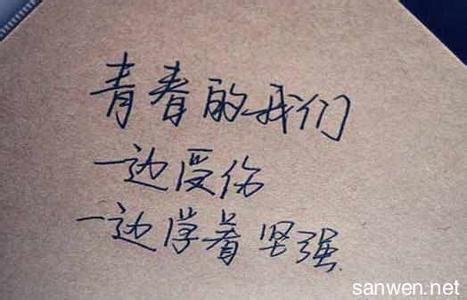 青春的我们
一边受伤
一边学着坚强
sanwen.net